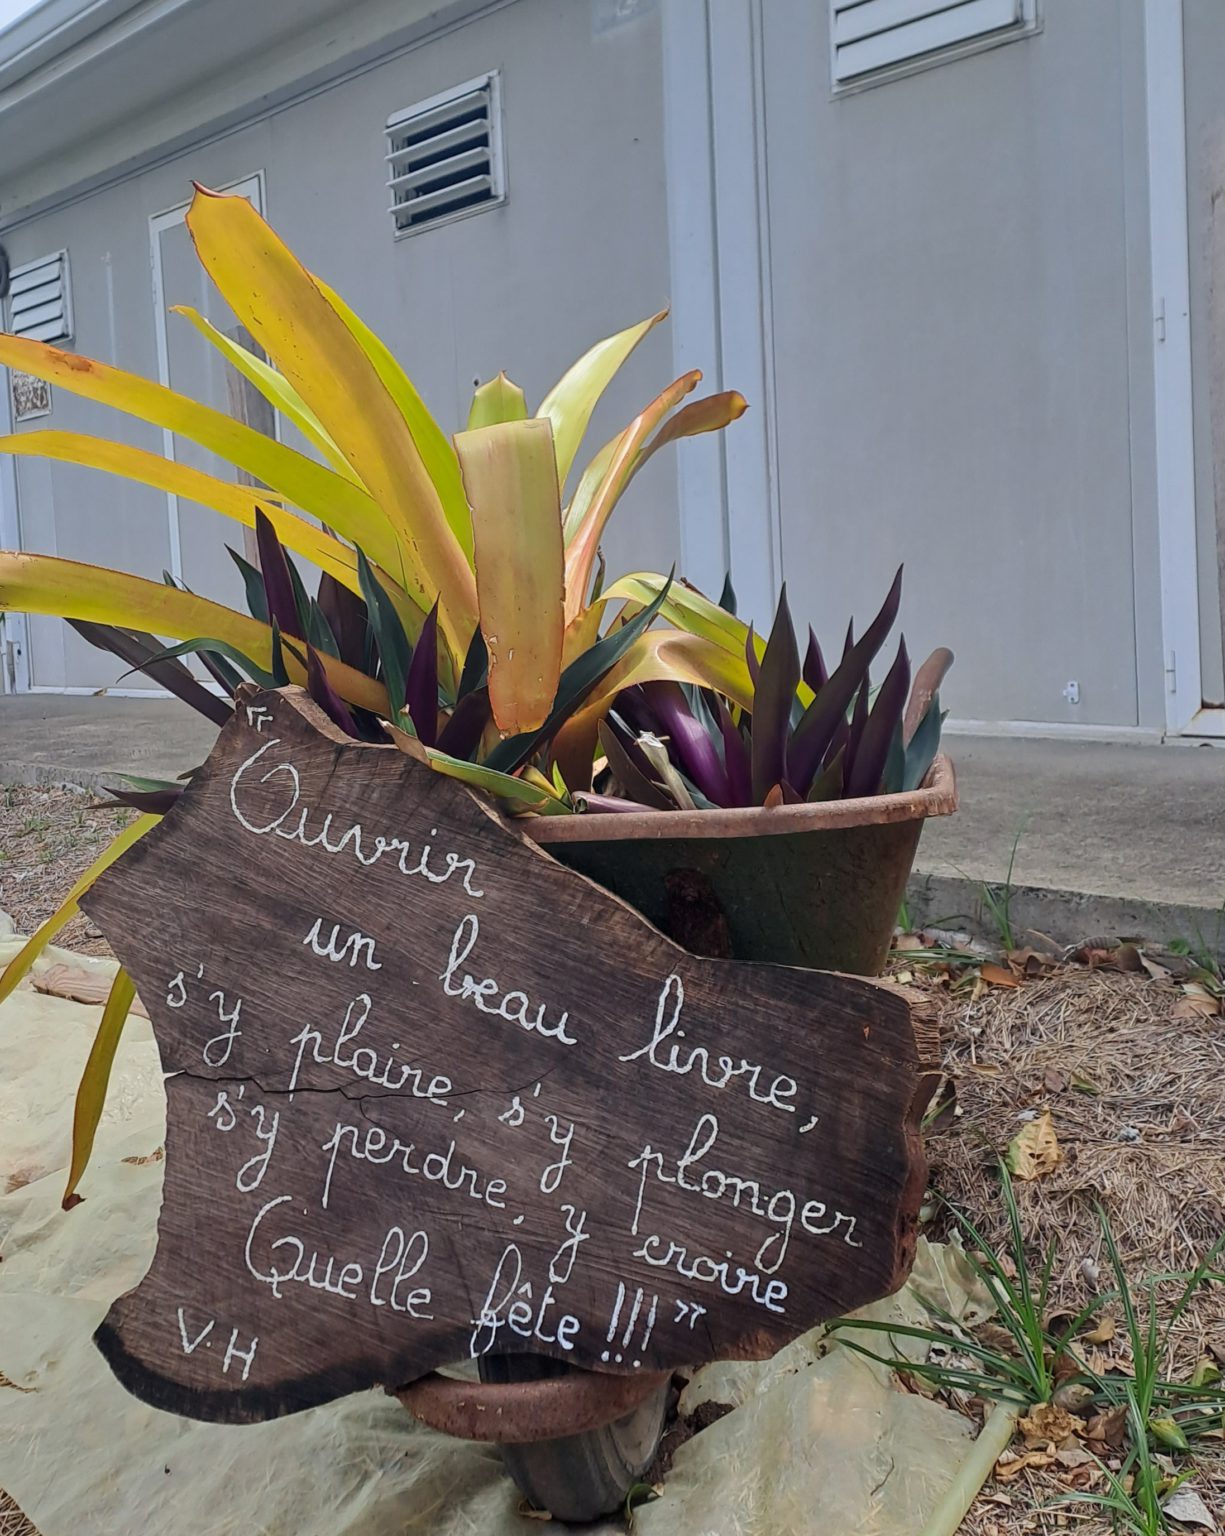 “Ouvrir
un beau livre,
s'y plaire, s'y plonger
s'y perdre, y croire
Quelle fête !!!”
V.H